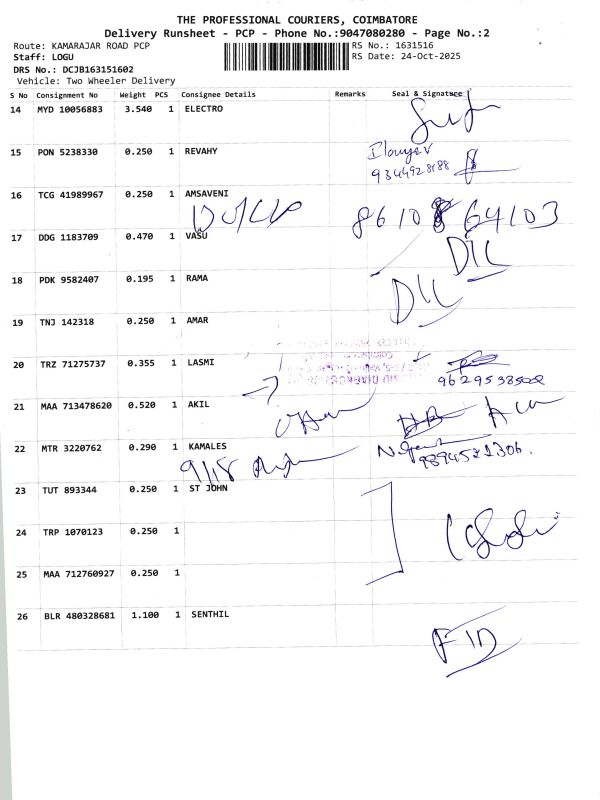 THE PROFESSIONAL COURIERS, COIMBATORE
Delivery Runsheet - PCP - Phone No.:9047080280 - Page No.:2
Route: KAMARAJAR ROAD PCP
RS No.: 1631516
Staff: LOGU
RS Date: 24-Oct-2025
DRS No.: DCJB163151602
Vehicle: Two Wheeler Delivery
S No Consignment No Weight PCS Consignee Details Remarks Seal & Signature
14 MYD 10056883 3.540 1 ELECTRO
15 PON 5238330 0.250 1 REVAHY
9344928188
16 TCG 41989967 0.250 1 AMSAVENI
8610 64103
17 DDG 1183709 0.470 1 VASU
DIL
18 PDK 9582407 0.195 1 RAMA
DIL
19 TNJ 142318 0.250 1 AMAR
20 TRZ 71275737 0.355 1 LASMI
9629538502
21 MAA 713478620 0.520 1 AKIL
22 MTR 3220762 0.290 1 KAMALES
9894521306.
23 TUT 893344 0.250 1 ST JOHN
24 TRP 1070123 0.250 1
25 MAA 712760927 0.250 1
26 BLR 480328681 1.100 1 SENTHIL
FID